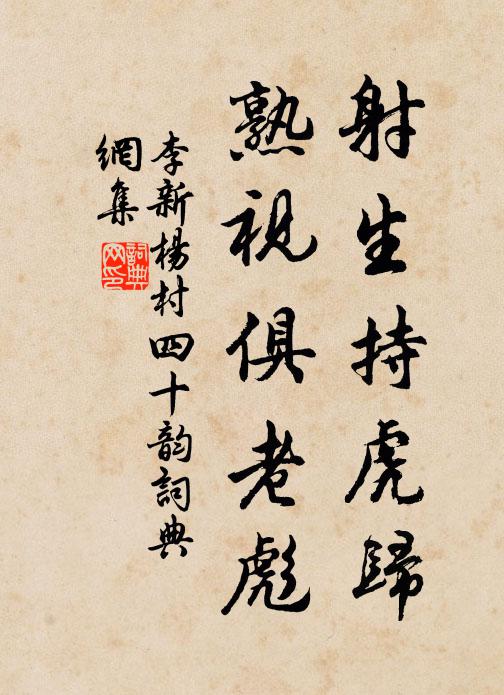 射生持虎歸
熟視俱老彪
李新楊村四十韵詞典
網集
詞典
网印